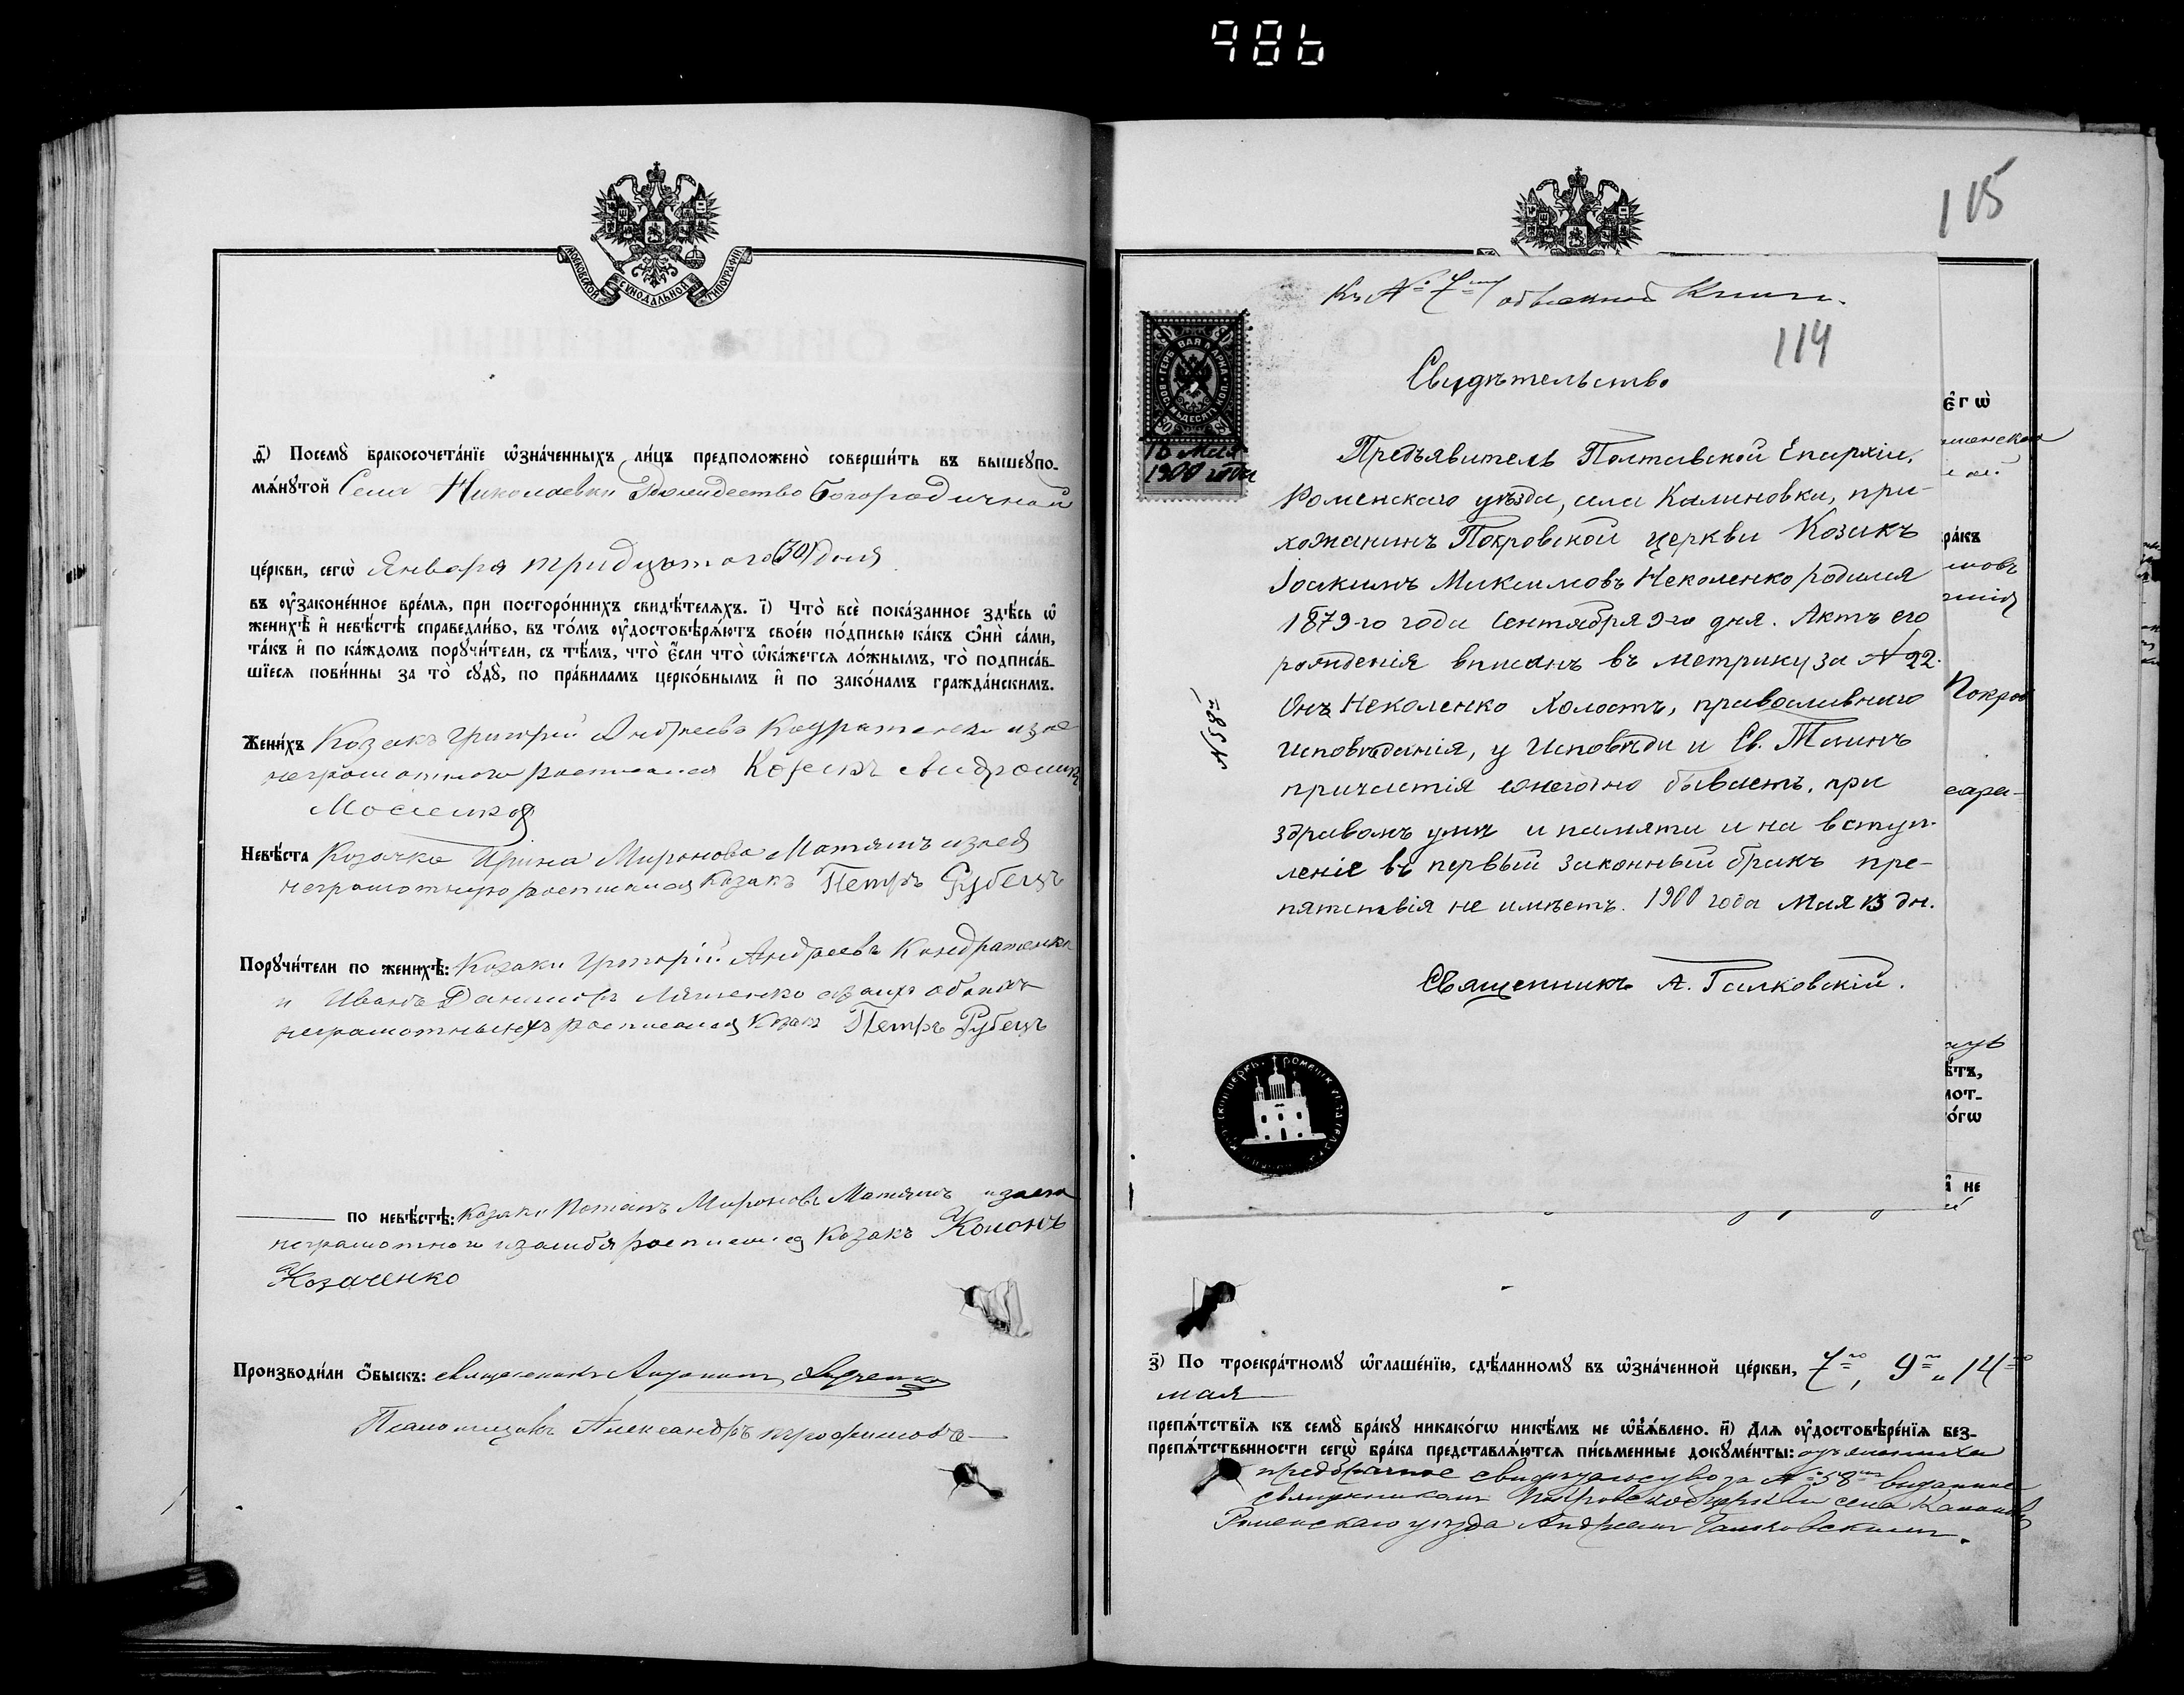 986
МОСКОВСКОЙ СѴНОДАЛЬНОЙ ТИПОГРАФІИ
д҃) Посемꙋ̀ бракосочета́нїе ѡ҆зна́ченныхъ ли́цъ предположено̀ соверши́ть въ вышеꙋпо-
мѧ́нꙋтой Села Николаевки Рождество Богородичной
це́ркви, сегѡ̀ Января тридцатого (30) дня
въ ᲂу҆законе́нное вре́мѧ, при посторо́ннихъ свидѣ́телѧхъ. і҃) Что̀ всѐ пока́занное здѣ́сь ѡ҆
женихѣ̀ и҆ невѣ́стѣ справедли́во, въ то́мъ ᲂу҆достовѣрѧ́ютъ свое́ю по́дписью ка́къ ѻ҆нѝ са́ми,
та́къ и҆ по ка́ждомъ порꙋчи́тели, съ тѣ́мъ, что̀ є҆́сли что̀ ѡ҆ка́жетсѧ ло́жнымъ, то̀ подписа́в-
шїесѧ пови́нны за то̀ сꙋдꙋ̀, по пра́виламъ церко́внымъ и҆ по зако́намъ гражда́нскимъ.
Жени́хъ Козакъ Григорій Андреевъ Кодратенко изне
неграмотного росписался Козакъ Андроникъ
Мосенко
Невѣ́ста Козачка Ирина Миронова Матяшъ изнея
неграмотную росписался Козакъ Петръ Рубецъ
Порꙋчи́тели по женихѣ̀: Козаки Григорій Андреевъ Кондратенко
и Иванъ Даниловъ Ляшенко обоихъ
неграмотныхъ росписался Козакъ Петръ Рубецъ
по невѣ́стѣ: Козаки Потапъ Мироновъ Матяшъ изаего
неграмотного изасибя росписался Козакъ Кононъ
Козаченко
Производи́ли ѻ҆́быскъ: священникъ
Псаломщикъ Александръ Трофимовъ
115
Къ № 7му обыскной Книги.
114
ГЕРБОВАЯ МАРКА
ВОСЕМЬДЕСЯТЪ КОП.
18 Мая
1900 года
Свидѣтельство
Предъявитель Полтавской Епархіи,
Роменскаго уѣзда, села Калиновки, при-
хожанинъ Покровской церкви Козакъ
Іоакимъ Максимовъ Неколенко родился
1879-го года Сентября 9-го дня. Актъ его
рожденія вписанъ въ метрику за № 22.
Онъ Неколенко Холостъ, православнаго
исповѣданія, у Исповѣди и Св. Таинъ
причастія ежегодно бываетъ, при
здравомъ умѣ и памяти и на вступ-
леніе въ первый законный бракъ пре-
пятствія не имѣетъ. 1900 года Мая 13 дн.
№ 58й
Священникъ А. Галковскій.
є҆гѡ̀
ра́къ
Покров
ѣтъ,
мот-
о́гѡ
не
з҃) По троекра́тномꙋ ѡ҆глаше́нїю, сдѣ́ланномꙋ въ ѡ҆зна́ченной це́ркви, 7го, 9го и 14го
мая
препѧ́тствїѧ къ семꙋ̀ бра́кꙋ никако́гѡ никѣ́мъ не ѡ҆б̾ѧ́влено. и҃) Длѧ ᲂу҆достовѣре́нїѧ без-
препѧ́тственности сегѡ̀ бра́ка представлѧ́ютсѧ пи́сьменные докꙋме́нты: отъ жениха
предбрачное свидѣтельство за № 58м выданное
священникомъ Покровской церкви села Калиновки
Роменскаго уѣзда Андреемъ Галковскимъ.